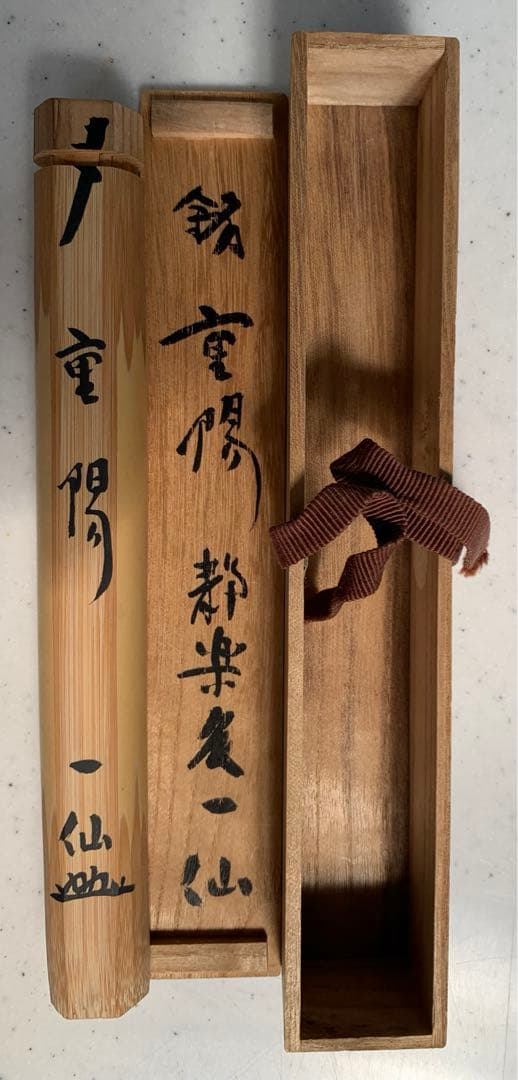 銘 重陽 静楽 一仙
〆 重陽 一仙